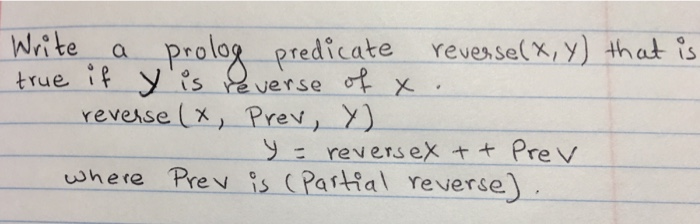 Write a prolog predicate reverse(x, y) that is
true if y is reverse of x.
reverse (x, Prev, Y)
y = reversex + + Prev
where Prev is (Partial reverse).